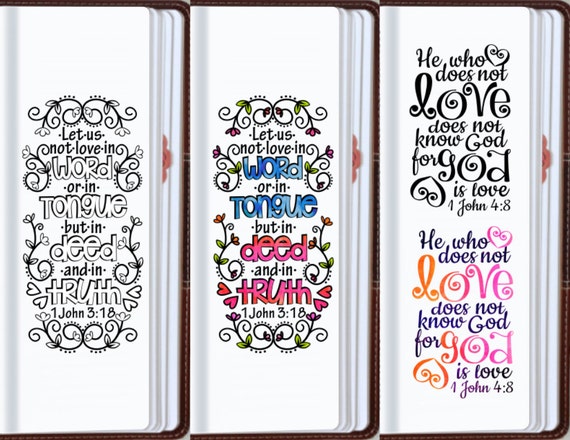 ·Let·us·
not·love·in
WORD
·or·in·
TONGUE
·but·in·
deed
·and·in·
TRUTH
1 John 3:18
·Let·us·
not·love·in
WORD
·or·in·
TONGUE
·but·in·
deed
·and·in·
TRUTH
1 John 3:18
He who
does not
love
does not
know God
for god
is love
1 John 4:8
He who
does not
love
does not
know God
for god
is love
1 John 4:8